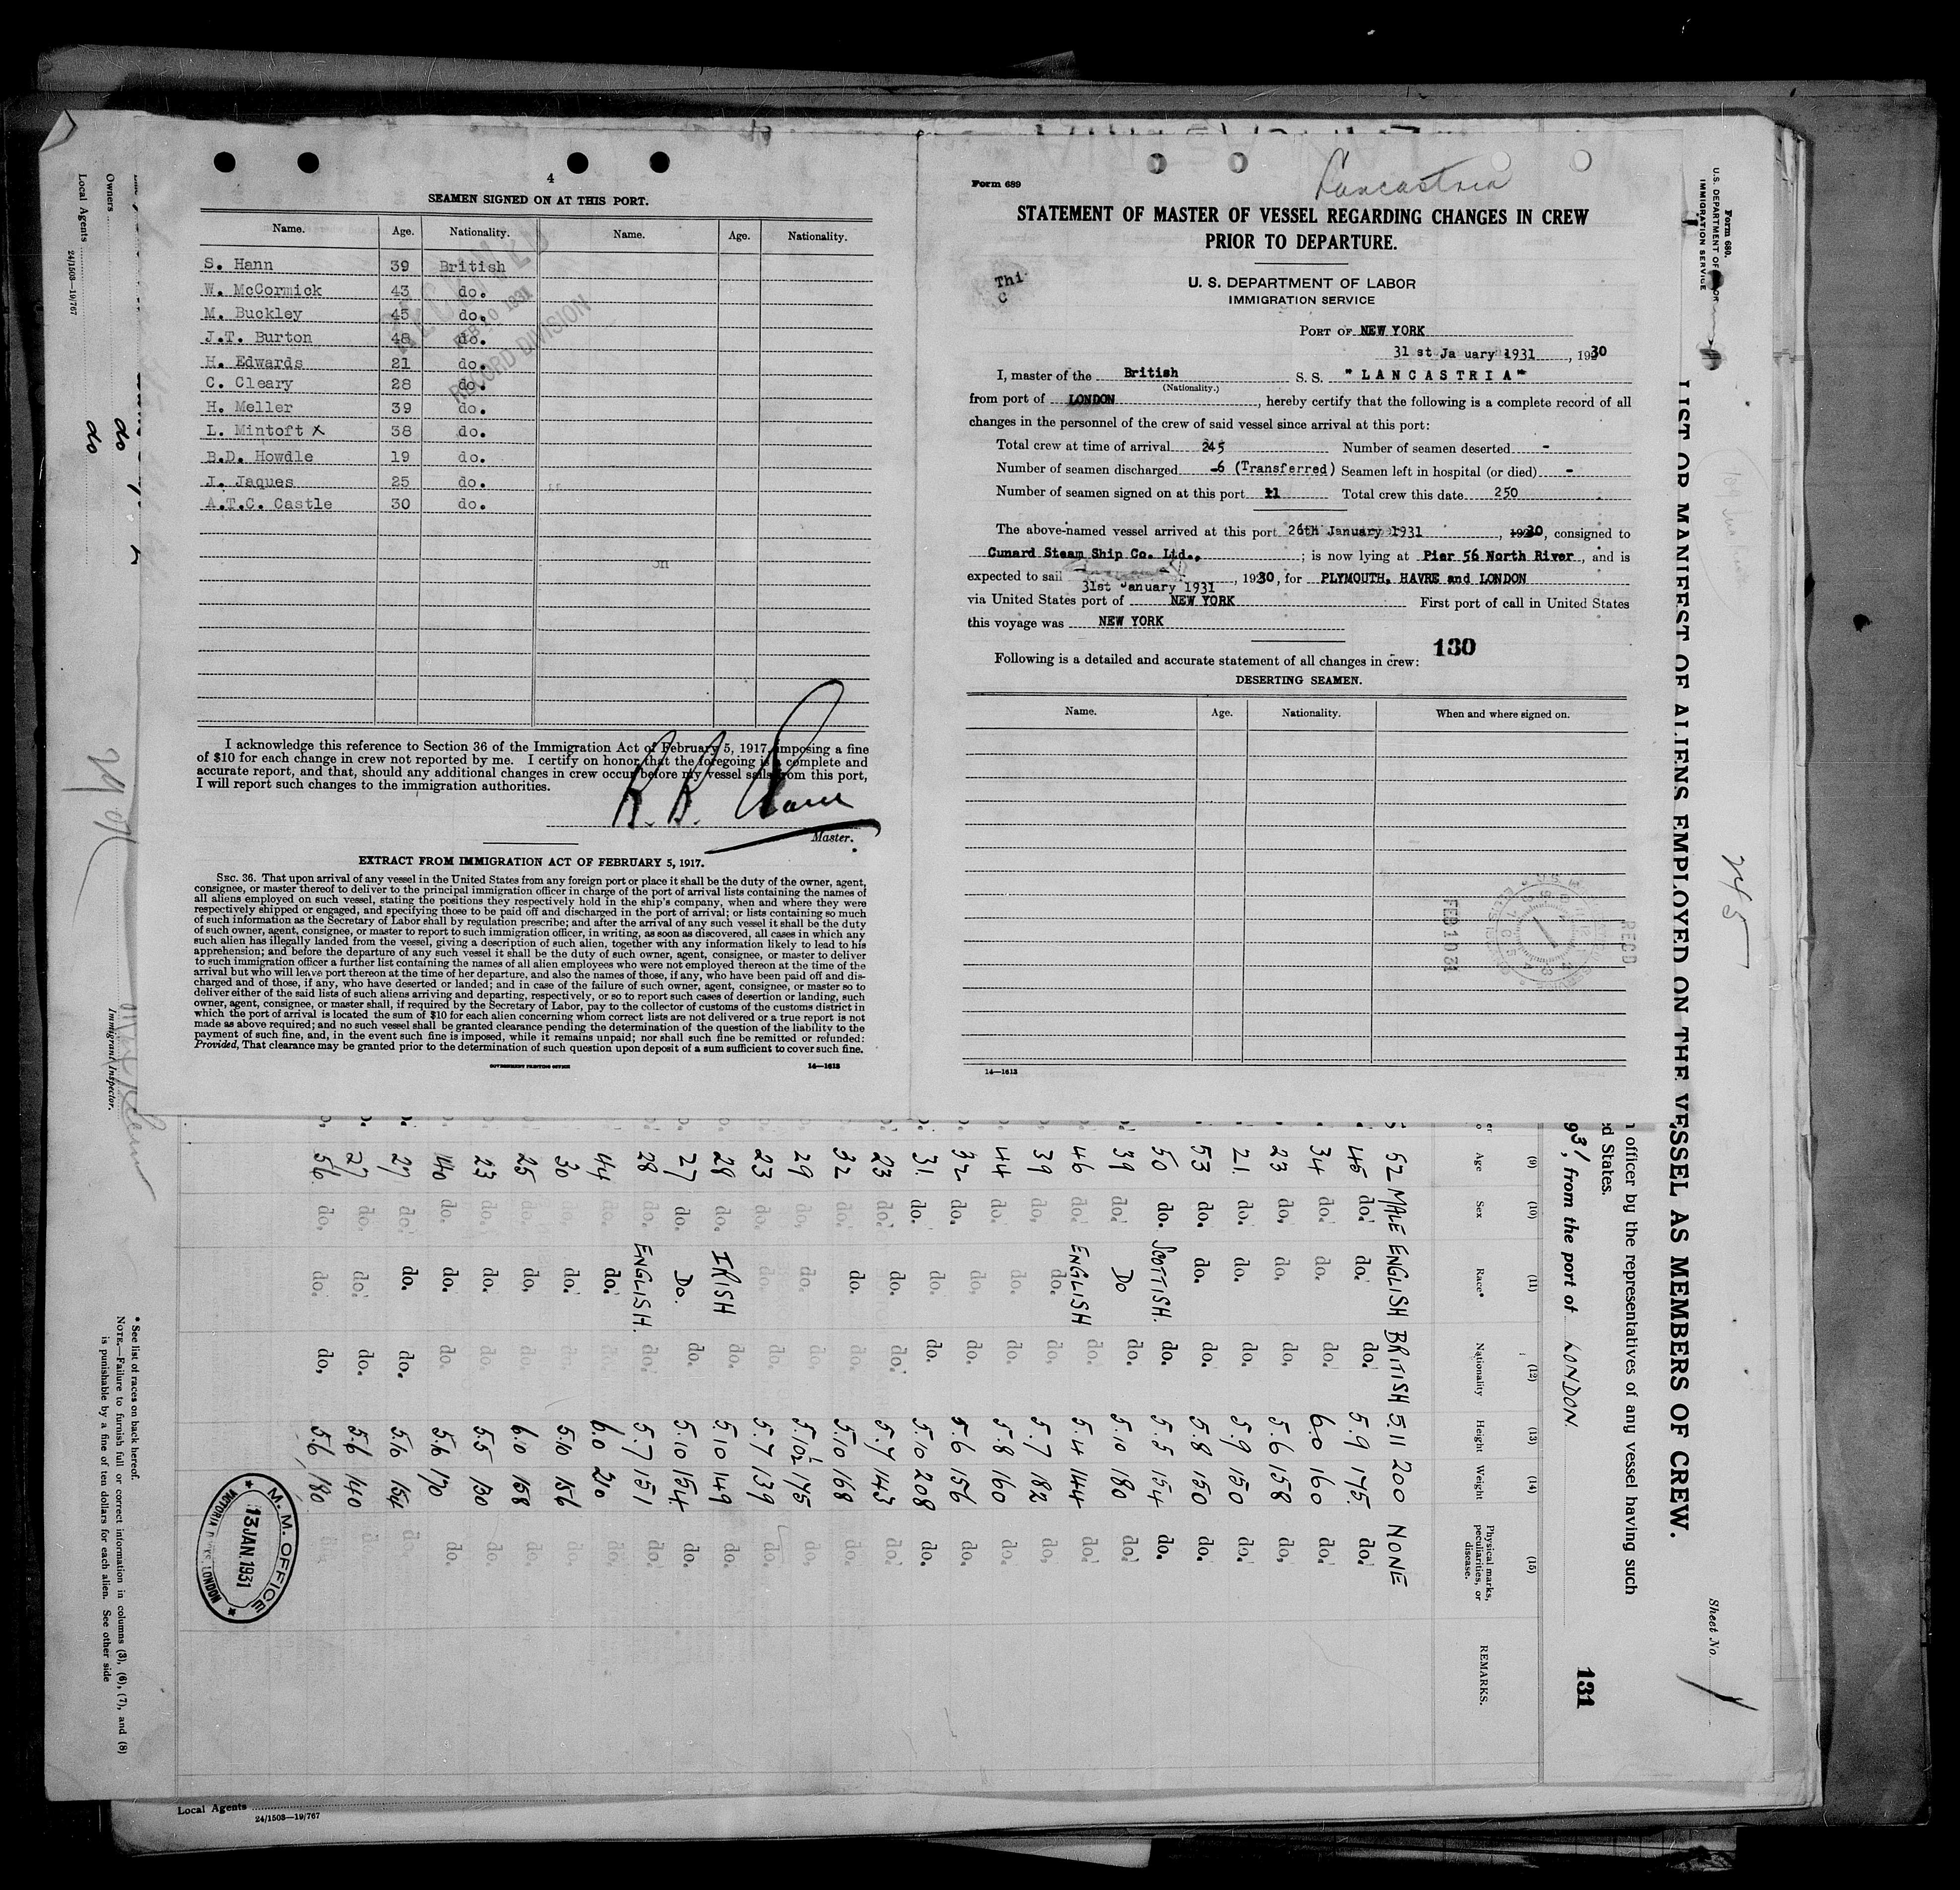 4
SEAMEN SIGNED ON AT THIS PORT.
Name. Age. Nationality. Name. Age. Nationality.
S. Hann 39 British
W. McCormick 43 do.
M. Buckley 45 do.
J.T. Burton 48 do.
H. Edwards 21 do.
C. Cleary 28 do.
H. Meller 39 do.
L. Mintoft X 38 do.
B.D. Howdle 19 do.
J. Jaques 25 do.
A.T.C. Castle 30 do.
FEB 10 1931
RECORD DIVISION
I acknowledge this reference to Section 36 of the Immigration Act of February 5, 1917, imposing a fine
of $10 for each change in crew not reported by me. I certify on honor that the foregoing is a complete and
accurate report, and that, should any additional changes in crew occur before my vessel sails from this port,
I will report such changes to the immigration authorities.
Master.
EXTRACT FROM IMMIGRATION ACT OF FEBRUARY 5, 1917.
SEC. 36. That upon arrival of any vessel in the United States from any foreign port or place it shall be the duty of the owner, agent,
consignee, or master thereof to deliver to the principal immigration officer in charge of the port of arrival lists containing the names of
all aliens employed on such vessel, stating the positions they respectively hold in the ship's company, when and where they were
respectively shipped or engaged, and specifying those to be paid off and discharged in the port of arrival; or lists containing so much
of such information as the Secretary of Labor shall by regulation prescribe; and after the arrival of any such vessel it shall be the duty
of such owner, agent, consignee, or master to report to such immigration officer, in writing, as soon as discovered, all cases in which any
such alien has illegally landed from the vessel, giving a description of such alien, together with any information likely to lead to his
apprehension; and before the departure of any such vessel it shall be the duty of such owner, agent, consignee, or master to deliver
to such immigration officer a further list containing the names of all alien employees who were not employed thereon at the time of the
arrival but who will leave port thereon at the time of her departure, and also the names of those, if any, who have been paid off and dis-
charged and of those, if any, who have deserted or landed; and in case of the failure of such owner, agent, consignee, or master so to
deliver either of the said lists of such aliens arriving and departing, respectively, or so to report such cases of desertion or landing, such
owner, agent, consignee, or master shall, if required by the Secretary of Labor, pay to the collector of customs of the customs district in
which the port of arrival is located the sum of $10 for each alien concerning whom correct lists are not delivered or a true report is not
made as above required; and no such vessel shall be granted clearance pending the determination of the question of the liability to the
payment of such fine, and, in the event such fine is imposed, while it remains unpaid; nor shall such fine be remitted or refunded:
Provided, That clearance may be granted prior to the determination of such question upon deposit of a sum sufficient to cover such fine.
GOVERNMENT PRINTING OFFICE 14—1613
Form 689
Lancastria
STATEMENT OF MASTER OF VESSEL REGARDING CHANGES IN CREW
PRIOR TO DEPARTURE.
U. S. DEPARTMENT OF LABOR
IMMIGRATION SERVICE
Thi
C
PORT OF NEW YORK
31 st Ja uary 1931, 1930
I, master of the British S. S. "LANCASTRIA"
(Nationality.)
from port of LONDON, hereby certify that the following is a complete record of all
changes in the personnel of the crew of said vessel since arrival at this port:
Total crew at time of arrival 245 Number of seamen deserted -
Number of seamen discharged 6 (Transferred) Seamen left in hospital (or died) -
Number of seamen signed on at this port 11 Total crew this date 250
The above-named vessel arrived at this port 26th January 1931, 1930, consigned to
Cunard Steam Ship Co. Ltd., ; is now lying at Pier 56 North River, and is
expected to sail 31st January 1931, 1930, for PLYMOUTH, HAVRE and LONDON
via United States port of NEW YORK First port of call in United States
this voyage was NEW YORK
130
Following is a detailed and accurate statement of all changes in crew:
DESERTING SEAMEN.
Name. Age. Nationality. When and where signed on.
FEB 10 31
REC'D
14—1613
Form 680.
U.S. DEPARTMENT OF LABOR
IMMIGRATION SERVICE
LIST OR MANIFEST OF ALIENS EMPLOYED ON THE VESSEL AS MEMBERS OF CREW.
Sheet No. 1
245
officer by the representatives of any vessel having such
d States.
931, from the port of LONDON.
131
(9) (10) (11) (12) (13) (14) (15)
Age Sex Race* Nationality Height Weight Physical marks, peculiarities, or disease. REMARKS.
52 MALE ENGLISH BRITISH 5.11 200 NONE
45 do. do. do. 5.9 175. do.
34 do. do. do. 6.0 160 do.
23 do. do. do. 5.6 158 do.
21. do. do. do. 5.9 150 do.
53 do. do. do. 5.8 150 do.
50 do. SCOTTISH. do. 5.5 154 do.
39 do. Do do. 5.10 180 do.
46 do. ENGLISH do. 5.4 144 do.
39 do. do. do. 5.7 182 do.
44 do. do. do. 5.8 160 do.
32 do. do. do. 5.6 156 do.
31. do. do. do. 5.10 208 do.
23 do. do. do. 5.7 143 do.
32 do. do. do. 5.10 168 do.
29 do. do. do. 5.10½ 175 do.
23 do. do. do. 5.7 139 do.
28 do. IRISH do. 5.10 149 do.
27 do. Do. do. 5.10 154. do.
28 do. ENGLISH. do. 5.7 151 do.
44 do. do. do. 6.0 210 do.
30 do. do. do. 5.10 156 do.
25 do. do. do. 6.0 158 do.
23 do. do. do. 5.5 130 do.
40 do. do. do. 5.6 170 do.
27 do. do. do. 5.10 154 do.
27 do. do. do. 5.6 140 do.
56. do. do. do. 5.6 180 do.
M.M. OFFICE
13 JAN. 1931
VICTORIA DOCKS. LONDON
* See list of races on back hereof.
NOTE.—Failure to furnish full or correct information in columns (3), (6), (7), and (8)
is punishable by a fine of ten dollars for each alien. See other side
Immigrant Inspector.
Owners do
Local Agents do
24/1503—19/767
Local Agents
24/1503—19/767